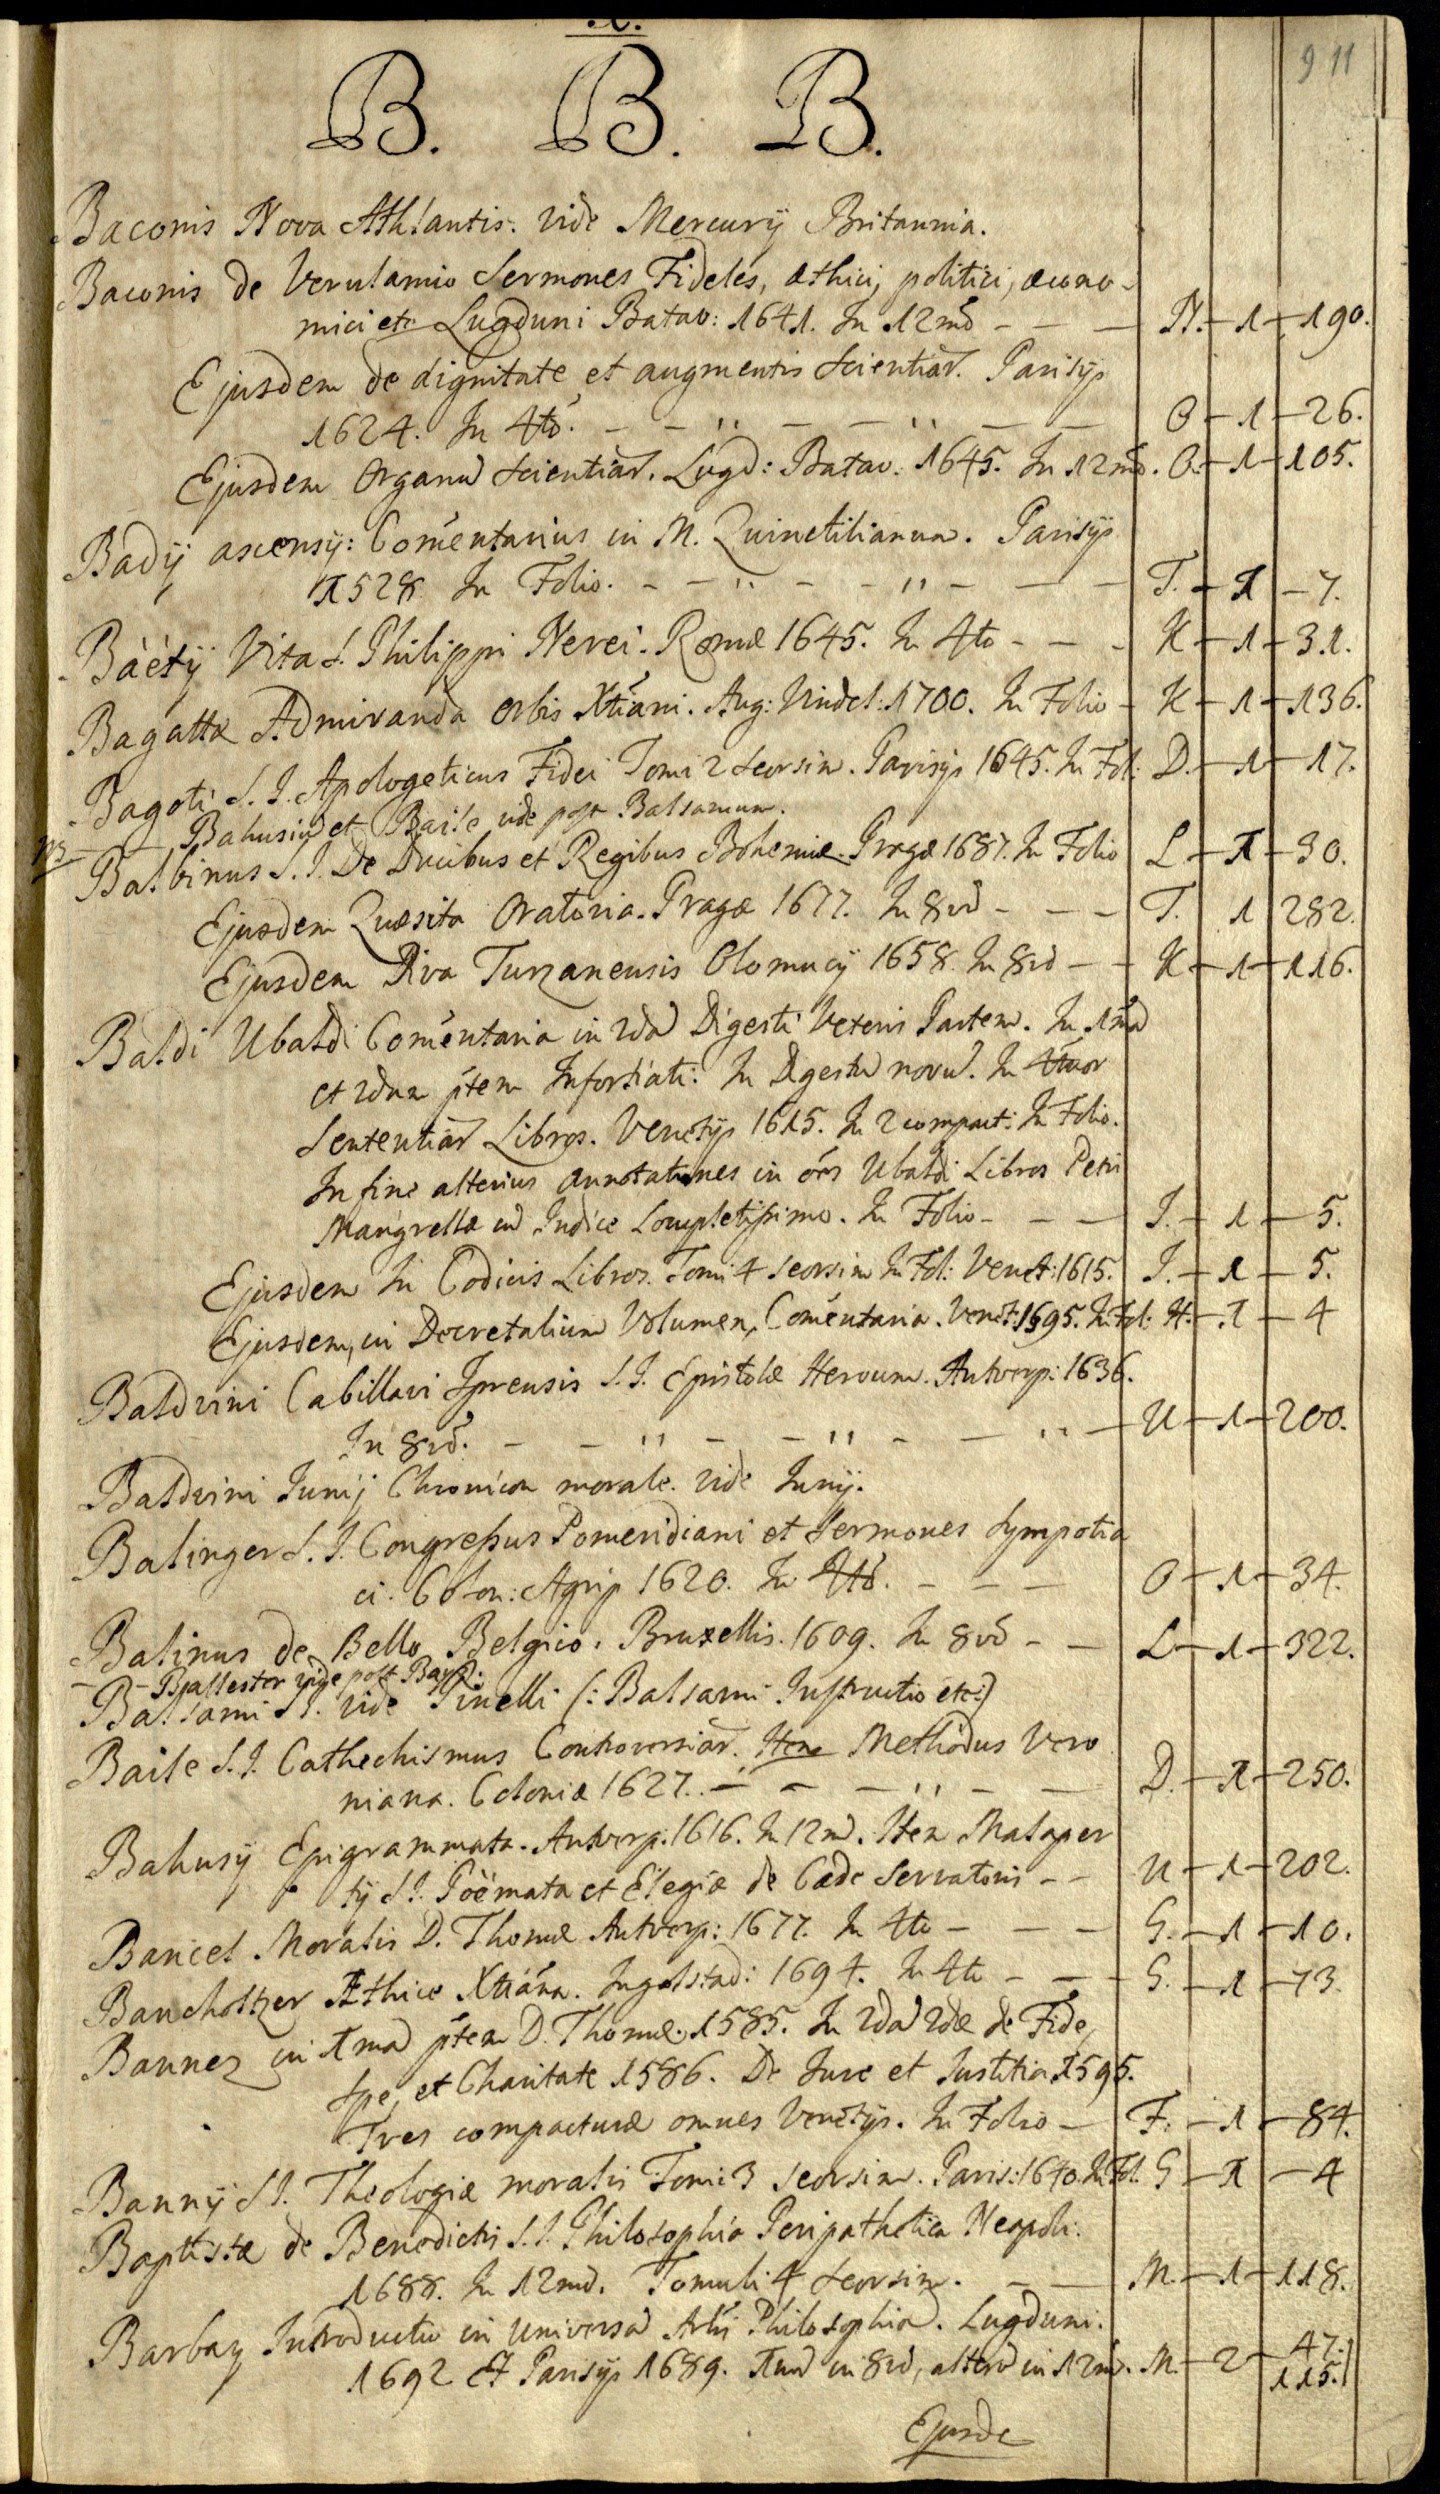 9 11
B. B. B.
Baconis Nova Athlantis. vide Mercurij Britannia.
Baconis de Verulamio Sermones Fideles, æthici, politici, æcono-
mici etc Lugduni Batav: 1641. In 12mo - - - N. - 1 - 190.
Ejusdem de dignitate et augmentis Scientiar. Parisijs
1624. In 4to. - - " - - " - - O - 1 - 26.
Ejusdem Organu Scientiar. Lugd: Batav: 1645. In 12mo. O. - 1 - 105.
Badij ascensij: Comentarius in M. Quinctilianum. Parisijs
1528. In Folio. - - " - - " - - - T. - 1 - 7.
Bàéty Vita S. Philippi Nerei. Romæ 1645. In 4to - - - K - 1 - 31.
Bagattæ Admiranda Orbis Xtiani. Aug: Vindel: 1700. In Folio - K - 1 - 136.
Bagoti S. J. Apologeticus Fidei Tomi 2 seorsim. Parisijs 1645. In Fol: D. - 1 - 17.
NB - - Bahusiu et Baile vide post Balsamum.
Balbinus S. J. De Ducibus et Regibus Bohemiæ. Pragæ 1687. In Folio L - 1 - 30.
Ejusdem Quæsita Oratoria. Pragæ 1677. In 8vo - - - T. 1 282.
Ejusdem Diva Turzanensis Olomucij 1658. In 8vo - - K - 1 - 116.
Baldi Ubaldi Comentaria in 2da Digesti Veteris Partem. In 1ma
et 2dam ptem Infortiati. In Digestu novu. In 4tuor
Sententiar Libros. Venetijs 1615. In 2 compact: In Folio.
In fine alterius annotationes in oes Ubaldi Libros Petri
Mangrellæ cu Indice Completissimo. In Folio - - - J. - 1 - 5.
Ejusdem In Codicis Libros. Tomi 4 seorsim In Fol: Venet: 1615. J. - 1 - 5.
Ejusdem, in Decretalium Volumen, Comentaria. Venet: 1595. In Fol: H. - 1 - 4
Baldvini Cabillavi Iprensis S. J. Epistolæ Heroum. Antverp: 1636.
In 8vo. - - " - - " - - " - U - 1 - 200.
Baldvini Junij Chronicon morale. vide Junij.
Balinger S. J. Congressus Pomeridiani et Sermones Sympotia
ci. Colon: Agrip 1620. In 4to. - - - O - 1 - 34.
Balinus de Bello Belgico. Bruxellis. 1609. In 8vo - - L - 1 - 322.
- - Ballester vide post Bayo.
Balsami S. J. vide Pinelli (: Balsami Instructio etc:)
Baile S. J. Cathechismus Controversiar. Item Methodus Vero
niana. Coloniæ 1627. - " - - - " - - D. - 1 - 250.
Bahusij Epigrammata. Antverp: 1616. In 12mo. Item Malaper
tij S. J. Poëmata et Elegiæ de Cæde Servatoris - - U - 1 - 202.
Bancel Moralis D. Thomæ Antverp: 1677. In 4to - - - G. - 1 - 10.
Bancholtzer Æthice Xtiána. Ingolstad: 1694. In 4to - - - G. - 1 - 73.
Bannez in 1ma ptem D. Thomæ. 1585. In 2da 2dæ de Fide,
Spe, et Charitate 1586. De Jure et Justitia 1595.
Tres compacturæ omnes Venetijs. In Folio - F. - 1 - 84.
Bannij S J. Theologiæ moralis Tomi 3 seorsim. Paris: 1640. In Fol. G - 1 - 4
Baptistæ de Benedictis S. J. Philosophia Peripathetica Neapoli.
1688. In 12mo. Tomuli 4 seorsim. - - M. - 1 - 118.
Barbay Introductio in universa Aris Philosophia. Lugduni.
1692 Et Parisijs 1689. 1mu in 8vo, alteru in 12mo. M. - 2 - 47.
115.
Ejusde